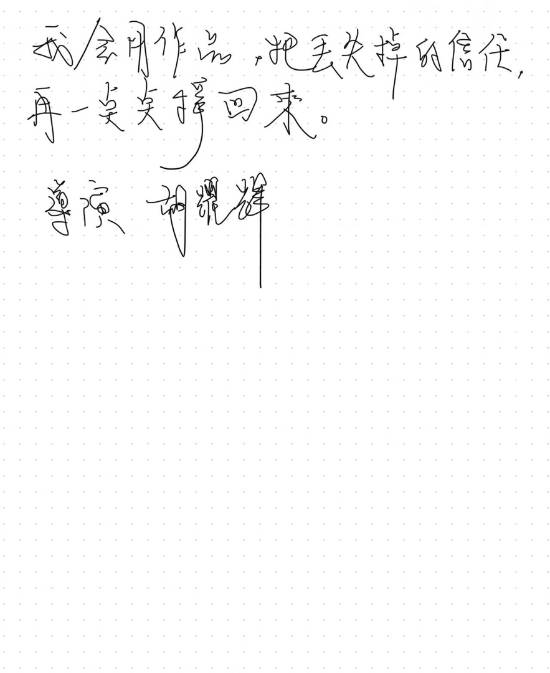 我会用作品,把丢失掉的信任,
再一点点挣回来。
導演 胡耀輝